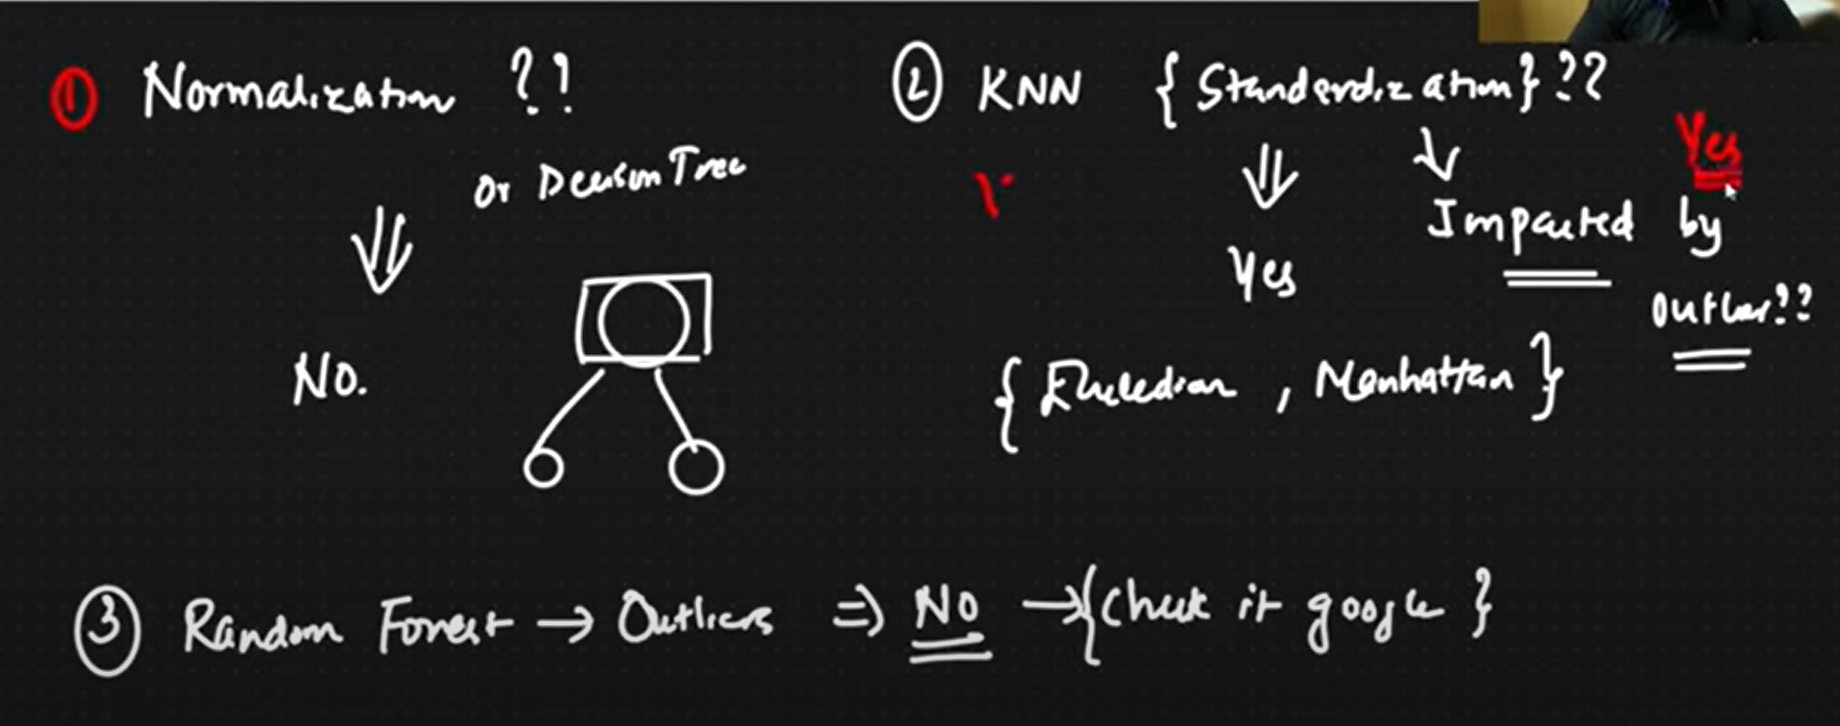 ① Normalization ??
or Decision Tree
No.
② KNN { Standardization } ??
Yes
Yes
Impacted by
Outlier??
{ Eucledian , Manhattan }
③ Random Forest → Outliers ⇒ No → { Check it google }